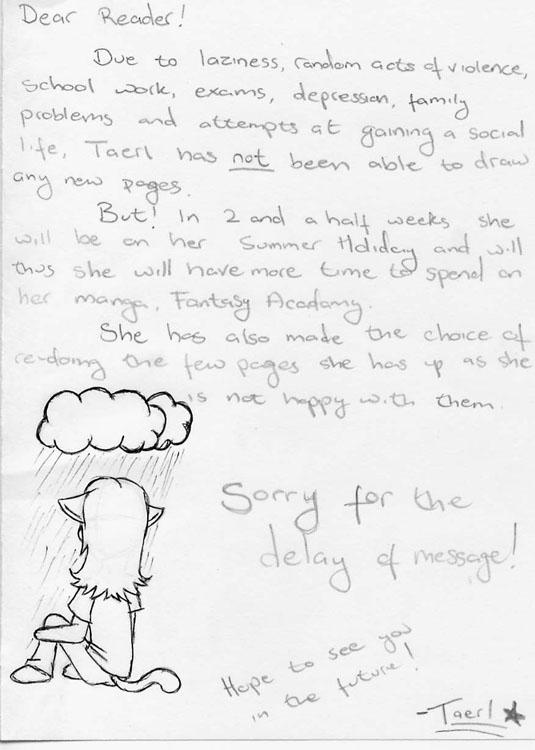 Dear Reader!
Due to laziness, random acts of violence,
school work, exams, depression, family
problems and attempts at gaining a social
life, Taerl has not been able to draw
any new pages.
But! In 2 and a half weeks she
will be on her Summer Holiday and will
thus she will have more time to spend on
her manga, Fantasy Academy.
She has also made the choice of
re-doing the few pages she has up as she
is not happy with them.
Sorry for the
delay of message!
Hope to see you
in the future!
-Taerl ★